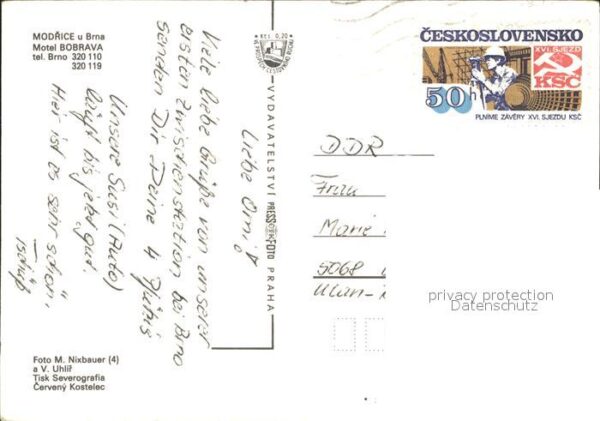 MODŘICE u Brna
Motel BOBRAVA
tel. Brno 320 110
320 119
Kčs 0,20
VYDAVATELSTVÍ PRESSFOTO PRAHA
ČESKOSLOVENSKO
XVI. SJEZD
KSČ
50 h
PLNÍME ZÁVĚRY XVI. SJEZDU KSČ
Liebe Omi!
Viele liebe Grüße von unserer
ersten Zwischenstation bei Brno
senden Dir Deine 4
Unsere Susi (Auto)
läuft bis jetzt gut.
Hier ist es sehr schön,
Tschüß
DDR
Frau
Marie
5068
Ulan-
privacy protection
Datenschutz
Foto M. Nixbauer (4)
a V. Uhlíř
Tisk Severografia
Červený Kostelec